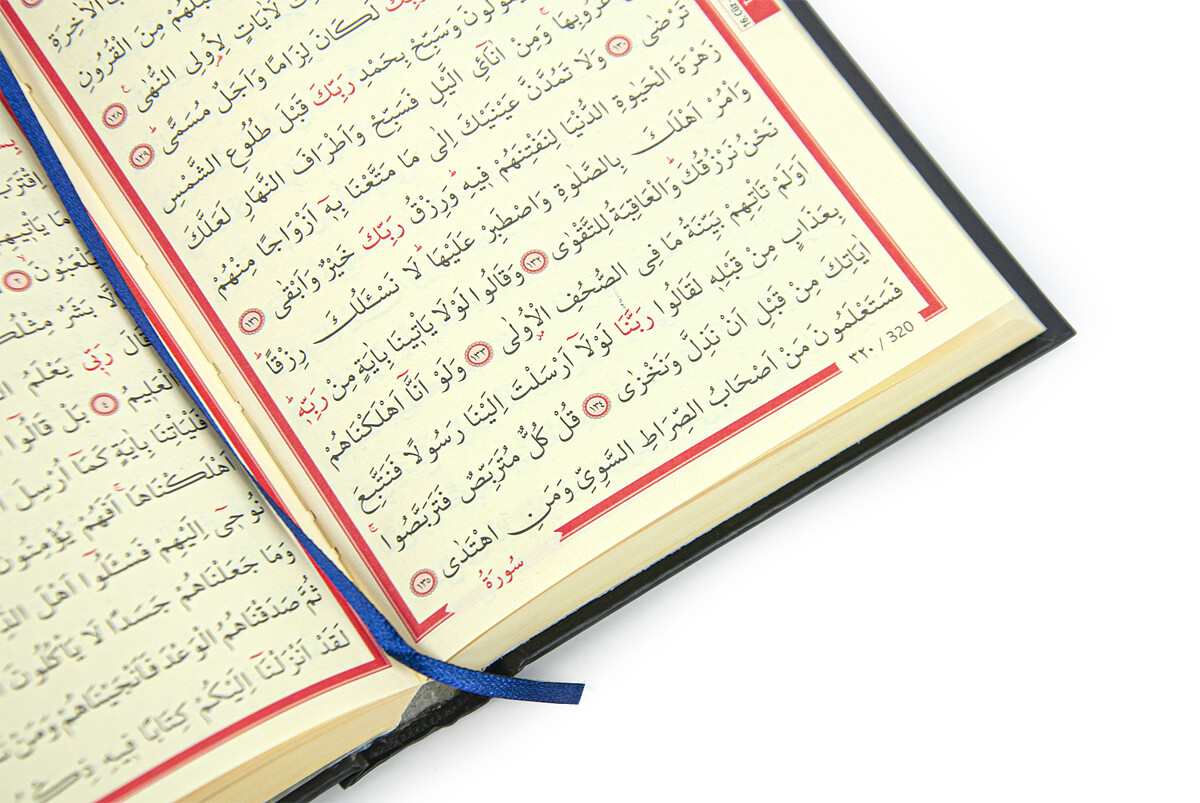 الْاٰخِرَةِ
مِنَ الْقُرُونِ
لَاٰيَاتٍ لِاُو۬لِى النُّهٰى ١٢٨
رَبِّكَ لَكَانَ لِزَامًا وَاَجَلٌ مُسَمًّى ١٢٩
وَسَبِّحْ بِحَمْدِ رَبِّكَ قَبْلَ طُلُوعِ الشَّمْسِ
غُرُوبِهَا وَمِنْ اٰنَآئِ الَّيْلِ فَسَبِّحْ وَاَطْرَافَ النَّهَارِ لَعَلَّكَ
تَرْضٰى ١٣٠ وَلَا تَمُدَّنَّ عَيْنَيْكَ اِلٰى مَا مَتَّعْنَا بِهٓ اَزْوَاجًا مِنْهُمْ
زَهْرَةَ الْحَيٰوةِ الدُّنْيَا لِنَفْتِنَهُمْ فِيهِ وَرِزْقُ رَبِّكَ خَيْرٌ وَاَبْقٰى ١٣١
وَاْمُرْ اَهْلَكَ بِالصَّلٰوةِ وَاصْطَبِرْ عَلَيْهَا لَا نَسْـَٔلُكَ رِزْقًا
نَحْنُ نَرْزُقُكَ وَالْعَاقِبَةُ لِلتَّقْوٰى ١٣٢ وَقَالُوا لَوْلَا يَاْتِينَا بِاٰيَةٍ مِنْ رَبِّهٖ
اَوَلَمْ تَاْتِهِمْ بَيِّنَةُ مَا فِى الصُّحُفِ الْاُو۫لٰى ١٣٣ وَلَوْ اَنَّٓا اَهْلَكْنَاهُمْ
بِعَذَابٍ مِنْ قَبْلِهٖ لَقَالُوا رَبَّنَا لَوْلَٓا اَرْسَلْتَ اِلَيْنَا رَسُولًا فَنَتَّبِعَ
اٰيَاتِكَ مِنْ قَبْلِ اَنْ نَذِلَّ وَنَخْزٰى ١٣٤ قُلْ كُلٌّ مُتَرَبِّصٌ فَتَرَبَّصُوا
فَسَتَعْلَمُونَ مَنْ اَصْحَابُ الصِّرَاطِ السَّوِيِّ وَمَنِ اهْتَدٰى ١٣٥
سُورَةُ
٣٢٠ / 320
اِقْتَرَبَ
مَا يَاْتِيهِمْ
يَلْعَبُونَ ٢
اِلَّا بَشَرٌ مِثْلُكُمْ
قَالَ رَبِّى يَعْلَمُ
الْعَلِيمُ ٤ بَلْ قَالُٓوا
فَلْيَاْتِنَا بِاٰيَةٍ كَمَٓا اُرْسِلَ
اَهْلَكْنَاهَا اَفَهُمْ يُؤْمِنُونَ
نُوحِٓى اِلَيْهِمْ فَسْـَٔلُٓوا اَهْلَ
وَمَا جَعَلْنَاهُمْ جَسَدًا لَا يَاْكُلُونَ
ثُمَّ صَدَقْنَاهُمُ الْوَعْدَ فَاَنْجَيْنَاهُمْ وَمَنْ
لَقَدْ اَنْزَلْنَٓا اِلَيْكُمْ كِتَابًا فِيهِ